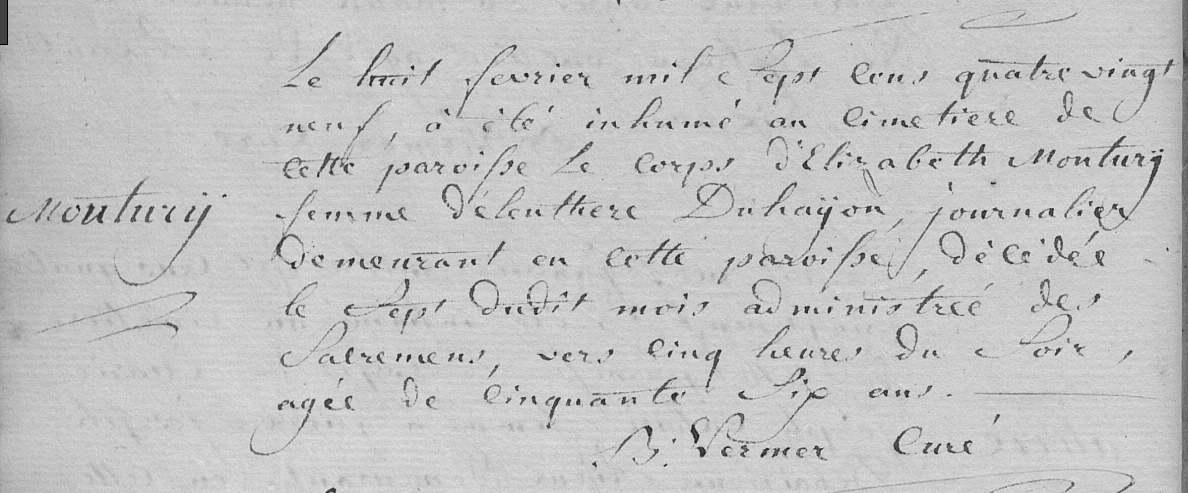 Le huit fevrier mil Sept cens quatre vingt
neuf, à été inhumé au cimetiere de
cette paroisse le corps d'Elizabeth Monturÿ
Monturÿ
femme d'éleuthere Duhaÿon, journalier
demeurant en cette paroisse, décédée
le Sept dudit mois administréé des
Sacremens, vers cinq heures du Soir,
agée de cinquante Six ans.
B. Vermer Curé